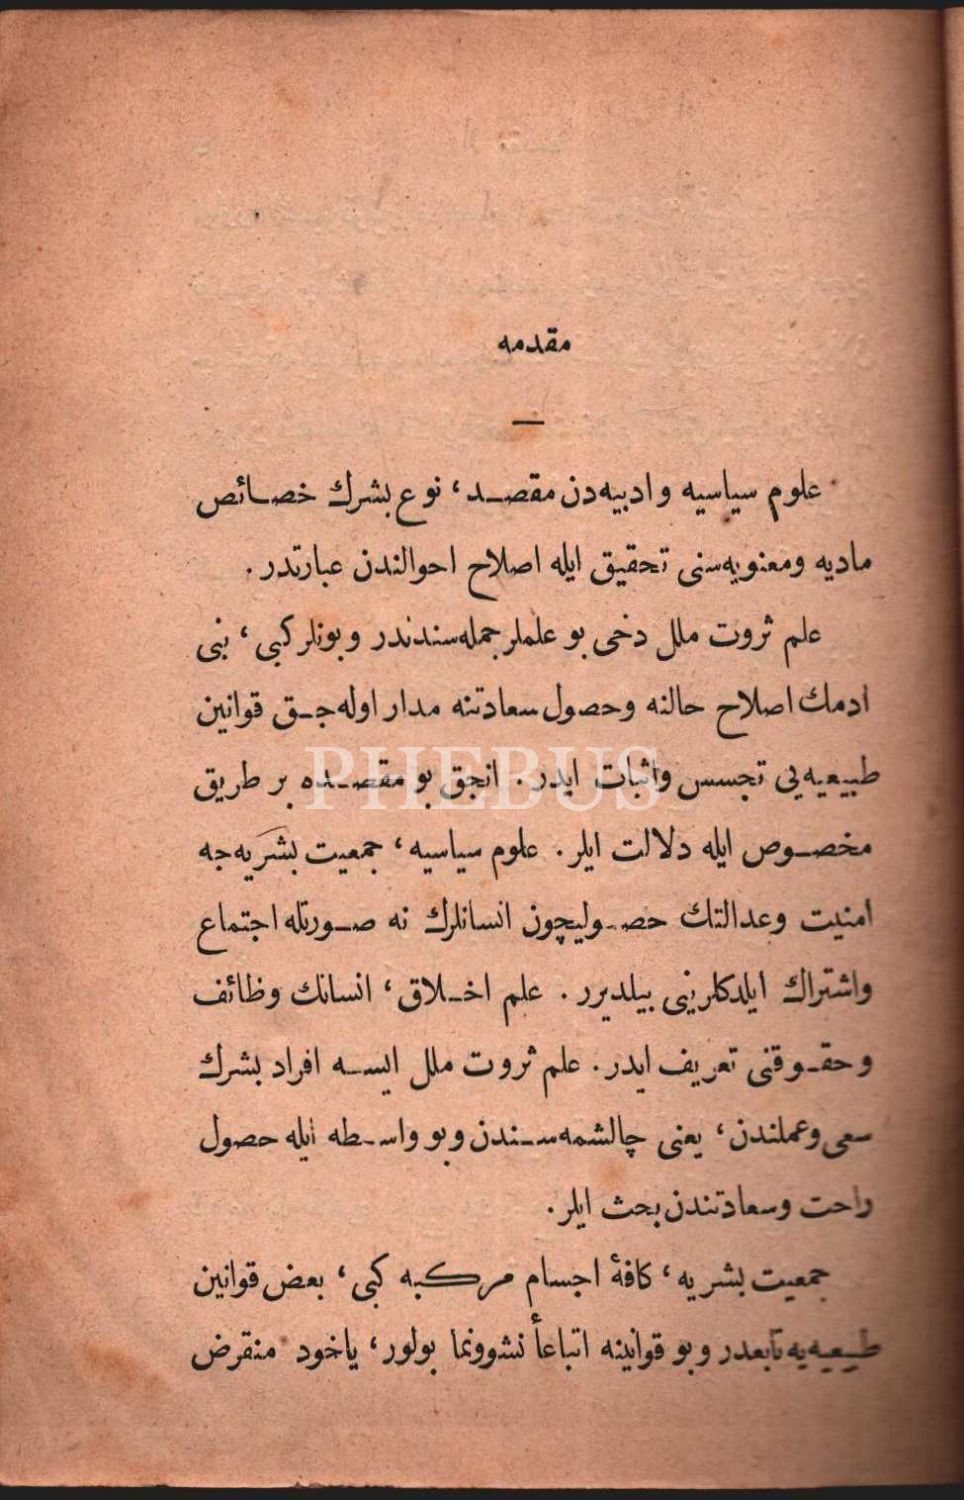 مقدمه
علوم سیاسیه وادبیه‌دن مقصد، نوع بشرك خصائص
مادیه ومعنویه‌سنی تحقیق ایله اصلاح احوالندن عبارتدر.
علم ثروت ملل دخی بو علملر جمله‌سندندر وبونلر كبی، بنی
ادمك اصلاح حالنه وحصول سعادتنه مدار اوله‌جق قوانین
طبیعیه‌یی تجسس واثبات ایدر. انجق بو مقصده بر طریق
PHEBUS
مخصوص ایله دلالت ایلر. علوم سیاسیه، جمعیت بشریه‌جه
امنیت وعدالتك حصولیچون انسانلرك نه صورتله اجتماع
واشتراك ایلدكلرینی بیلدیرر. علم اخلاق، انسانك وظائف
وحقوقنی تعریف ایدر. علم ثروت ملل ایسه افراد بشرك
سعی وعملندن، یعنی چالشمه‌سندن وبو واسطه ایله حصول
راحت وسعادتندن بحث ایلر.
جمعیت بشریه، كافهٔ اجسام مركبه كبی، بعض قوانین
طبیعیه‌یه تابعدر وبو قوانینه اتباعاً نشوونما بولور، یاخود منقرض